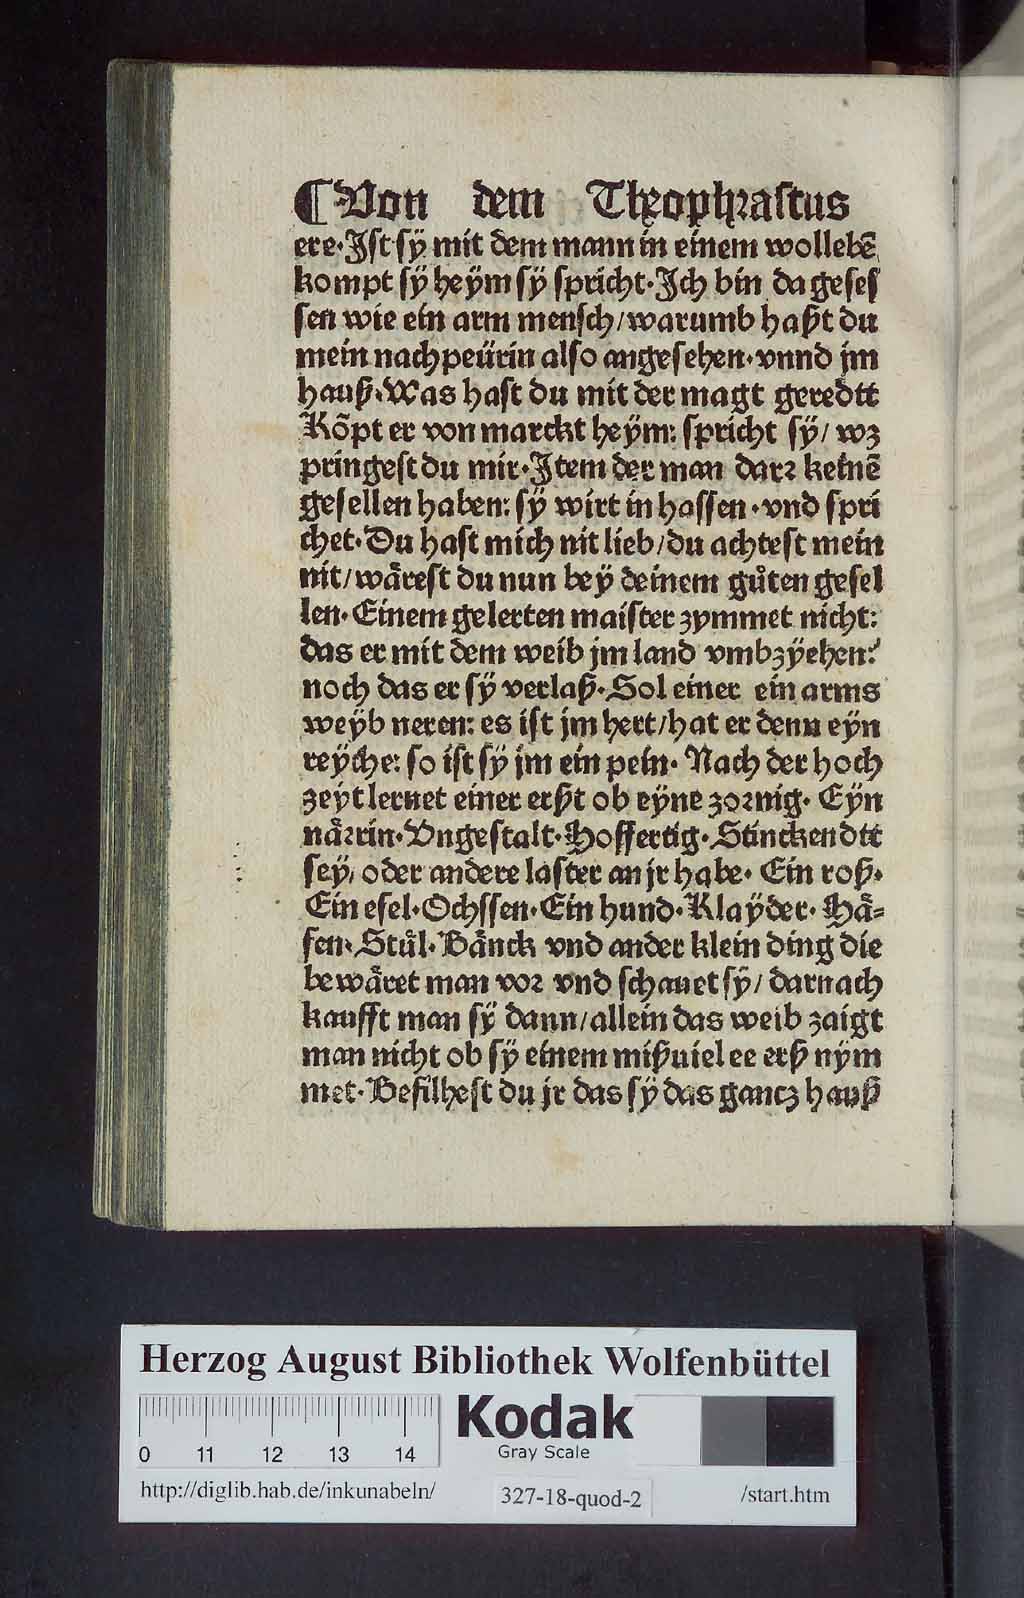 ¶Von dem Theophrastus
ere·Ist sÿ mit dem mann in einem wollebē
kompt sÿ heÿm sÿ spricht·Ich bin da geses
sen wie ein arm mensch/warumb haßt du
mein nachpeürin also angesehen·vnnd jm
hauß·Was hast du mit der magt geredtt
Kõpt er von marckt heÿm: spricht sÿ/ wz
pringest du mir·Item der man darꝛ keinē
gesellen haben: sÿ wirt in hassen·vnd spri
chet·Du hast mich nit lieb/du achtest mein
nit/wårest du nun beÿ deinem gůten gesel
len·Einem gelerten maister zymmet nicht:
das er mit dem weib jm land vmbzÿehen:
noch das er sÿ verlaß·Sol einer ein arms
weÿb neren: es ist jm hert/hat er denn eÿn
reÿche: so ist sÿ jm ein pein· Nach der hoch
zeÿt lernet einer erßt ob eÿne zoꝛnig· Eÿn
nåꝛrin·Vngestalt·Hoffertig·Stinckendtt
seÿ, oder andere laster an jr habe· Ein roß·
Ein esel·Ochssen·Ein hund·Klaÿder·Hå⸗
fen·Stůl·Bånck vnd ander klein ding die
bewåret man voꝛ vnd schauet sÿ/ darnach
kaufft man sÿ dann/allein das weib zaigt
man nicht ob sÿ einem mißuiel ee erß nÿm
met·Befilhest du jr das sÿ das gancz hauß
Herzog August Bibliothek Wolfenbüttel
0 11 12 13 14
Kodak
Gray Scale
http://diglib.hab.de/inkunabeln/ 327-18-quod-2 /start.htm